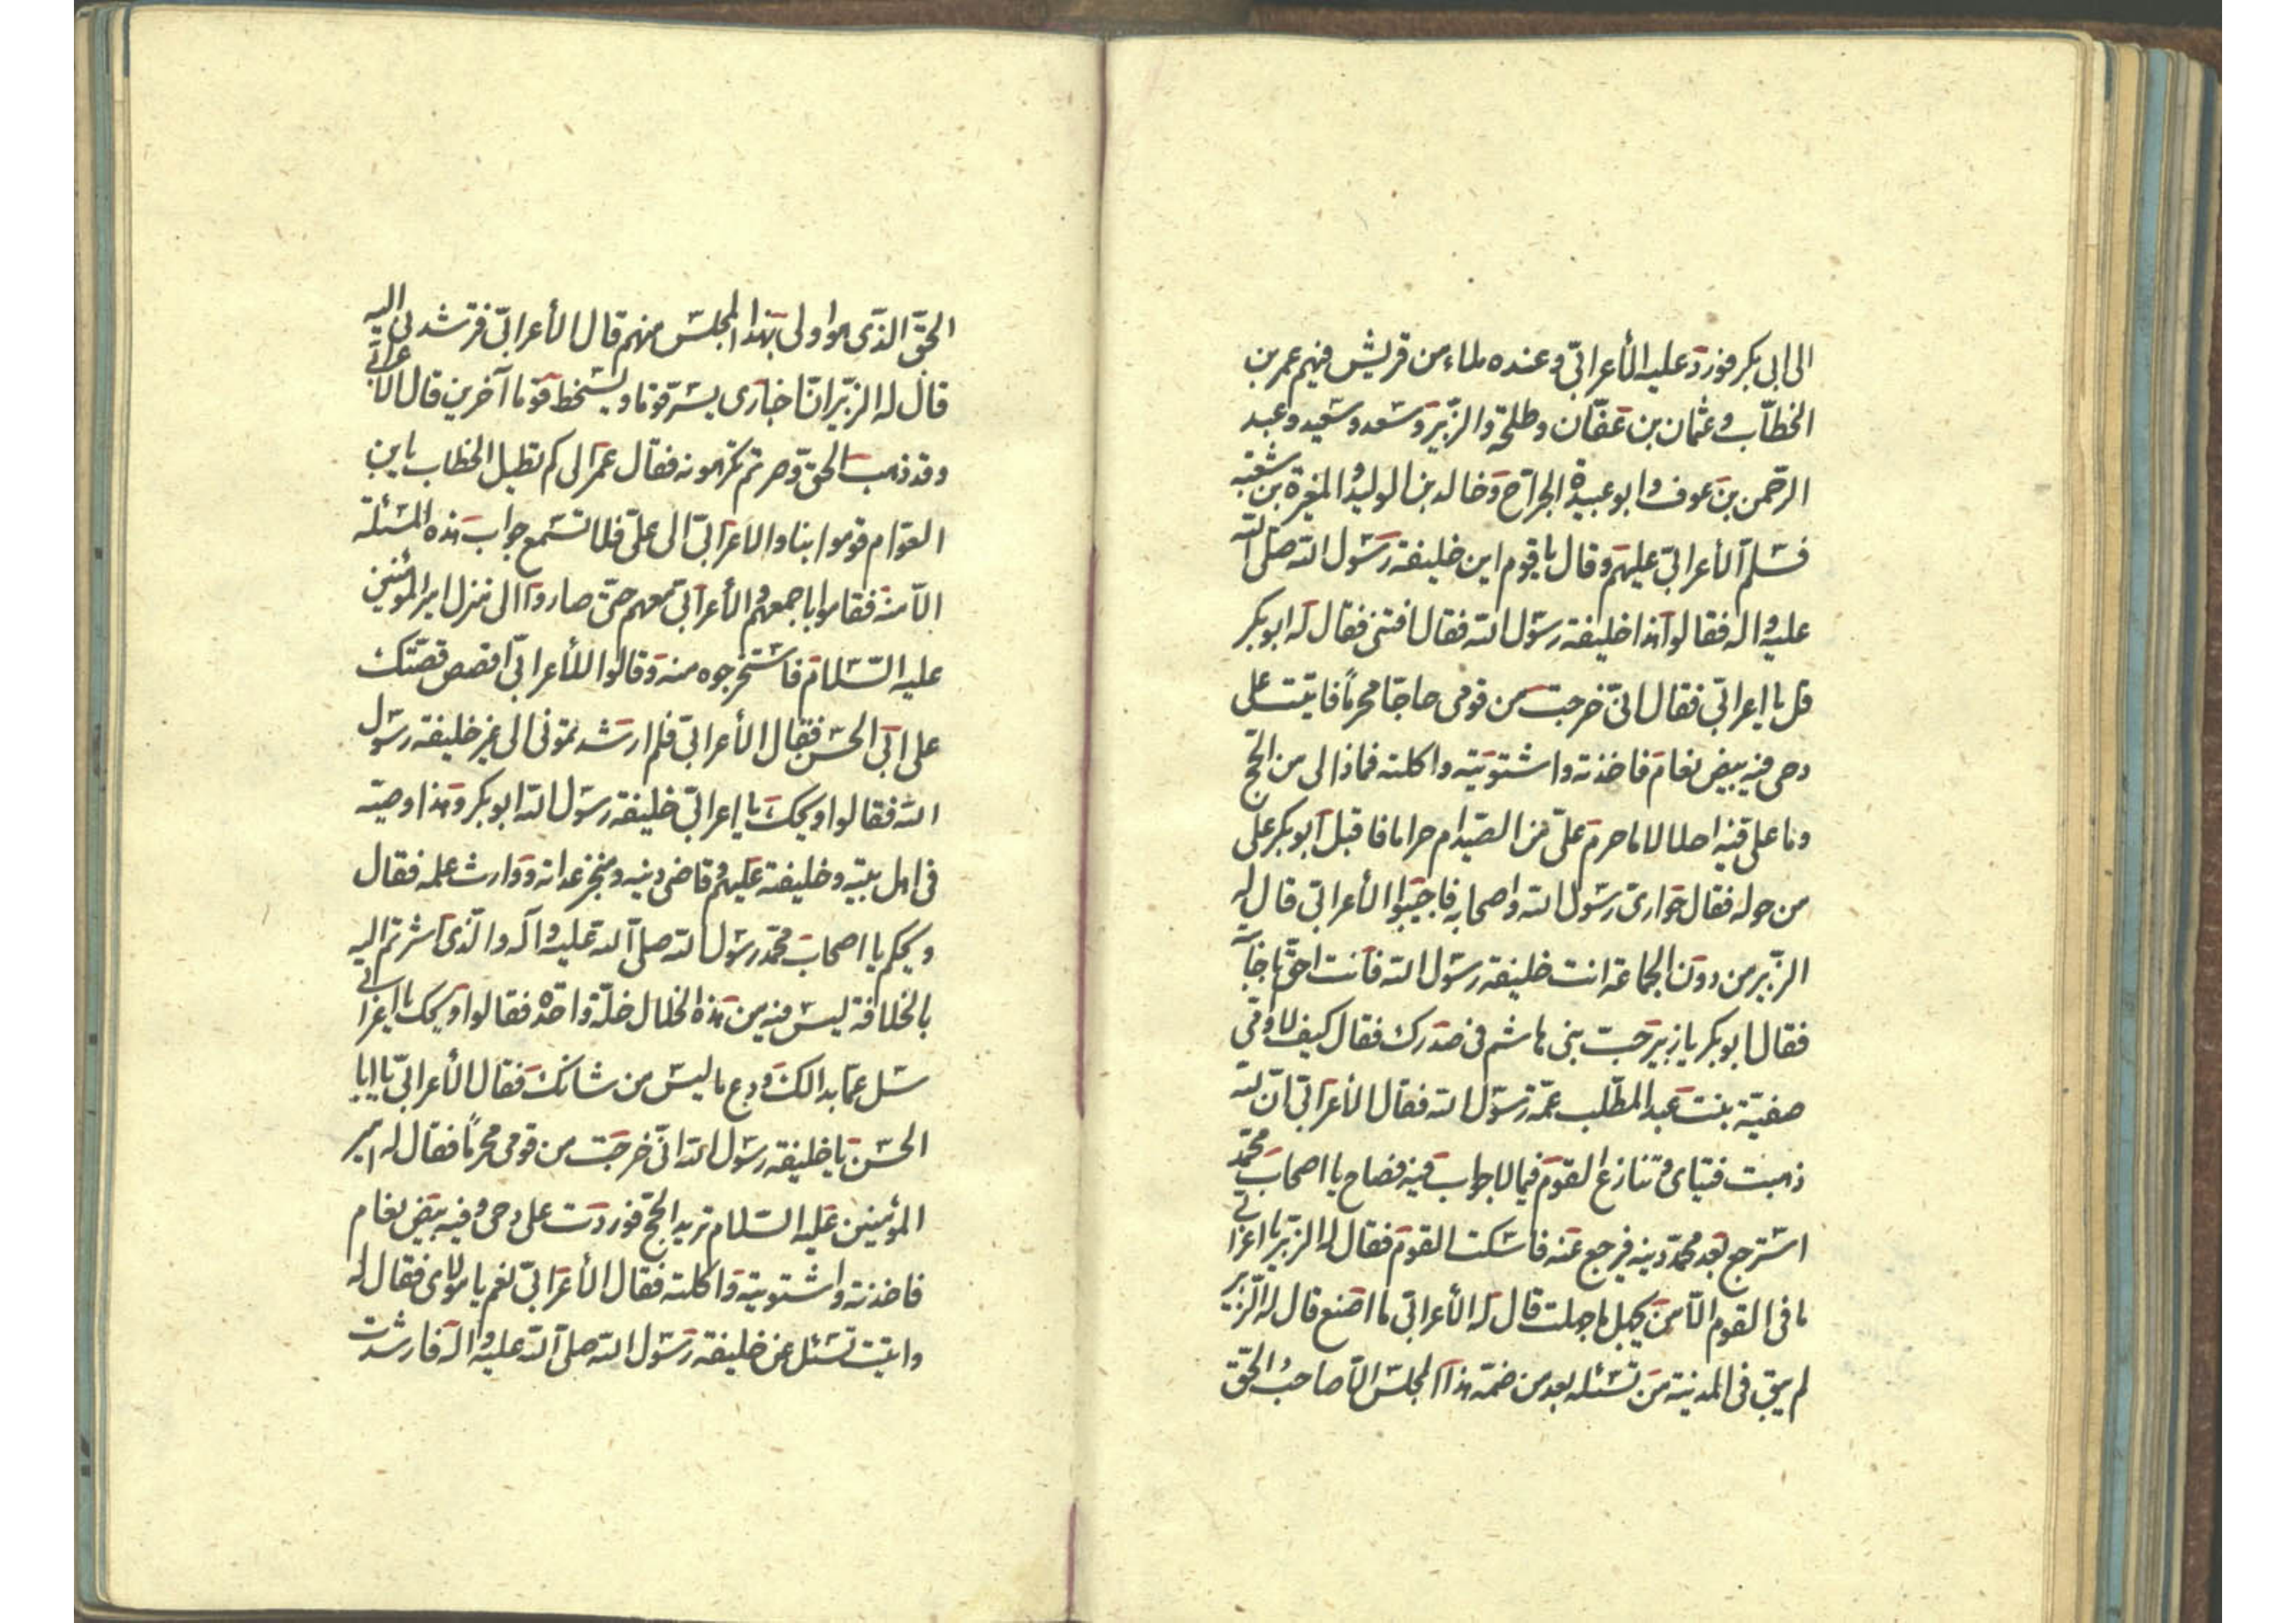 الى ابى بكر فورد عليه الأعرابىّ وعنده ملاء من قريش فيهم عمر بن
الخطّاب وعثمان بن عفّان وطلحة والزّبير وسعد وسعيد وعبد
الرّحمن بن عوف وابو عبيدة الجراح وخالد بن الوليد والمغيرة بن شعبة
فسلّم الأعرابىّ عليهم وقال يا قوم اين خليفة رسول الله صلّى الله
عليه واله فقالوا هذا خليفة رسول الله فقال افتنى فقال له ابو بكر
قل يا اعرابىّ فقال انّى خرجت من قومى حاجّا محرمًا فاتيت على
دحى فيه بيض نعام فاخذته واشتويته واكلته فماذا لى من الحّج
وما علىّ فيه احلالا ما حرم علىّ من الصّيد ام حراما فاقبل ابو بكر على
من حوله فقال حوارىّ رسول الله واصحابه فاجيبوا الأعرابى قال له
الزّبير من دون الجماعة انت خليفة رسول الله فانت احقّ باجابته
فقال ابو بكر يا زبير حبّ بنى هاشم فى صدرك فقال كيف لا وامّى
صفيّة بنت عبد المطّلب عمّة رسول الله فقال الأعرابىّ انّ لله
ذهبت فتياى وتنازع القوم فيما لا جواب فيه فصاح يا اصحاب محمّد
استرجع بعد محمّد دينه فيرجع عنه فاسكت القوم فقال له الزّبير يا اعرابى
ما فى القوم الّا من يجهل ما جهلت قال له الأعرابى ما اصنع قال له الزّبير
لم يبق فى المدينة من تسئله بعد من ضمّه هذا المجلس الّا صاحب الحقّ
الحقّ الذّى هو اولى بهذا المجلس منهم قال الأعرابىّ فترشدنى اليه
قال له الزّبير انّ اخبارى يسرّ قوما ويسخط قوما آخرين قال الأعرابى
وقد ذهب الحقّ وصرتم تكرهونه فقال عمر الى كم تطيل الخطاب يابن
العوّام قوموا بنا والاعرابىّ الى علىّ فلا تسمع جواب هذه المسئلة
الّا منه فقاموا باجمعهم والأعرابىّ معهم حتّى صاروا الى منزل امير المؤمنين
عليه السّلام فاستخرجوه منه وقالوا للأعرابىّ اقصص قصّتك
على ابى الحسن فقال الأعرابىّ فلم ارشدتمونى الى غير خليفة رسول
الله فقالوا ويحك يا اعرابىّ خليفة رسول الله ابو بكر وهذا وصيّه
فى اهل بيته وخليفته عليهم وقاضى دينه ومنجز عداته ووارث علمه فقال
ويحكم يا اصحاب محمّد رسول الله صلى الله عليه وآله والّذى اشرتم اليه
بالخلافة ليس فيه من هذه الخلال خلّة واحدة فقالوا ويحك يا اعرابى
سل عمّا بدا لك ودع ما ليس من شانك فقال الأعرابىّ يا ابا
الحسن يا خليفة رسول الله انّى خرجت من قومى محرمًا فقال له امير
المؤمنين عليه السلام تريد الحجّ فوردت على دحى وفيه بيض نعام
فاخذته واشتويته واكلته فقال الأعرابىّ نعم يا مولاى فقال له
واتيت تسئل عن خليفة رسول الله صلى الله عليه واله فارشدت